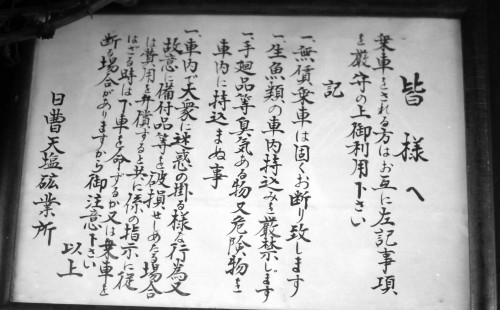 皆様へ
乗車をされる方はお互に左記事項
を厳守の上御利用下さい
記
一、無賃乗車は固くお断り致します
一、生魚類の車内持込みを厳禁します
一、手廻品等臭気ある物又危険物を
車内に持込まぬ事
一、車内で大衆に迷惑の掛る様な行為又
故意に備付品等を破損せしめたる場合
は費用を弁償すると共に係の指示に従
はざる時は下車を命ずるか又は乗車を
断る場合がありますから御注意下さい
以上
日曹天塩砿業所